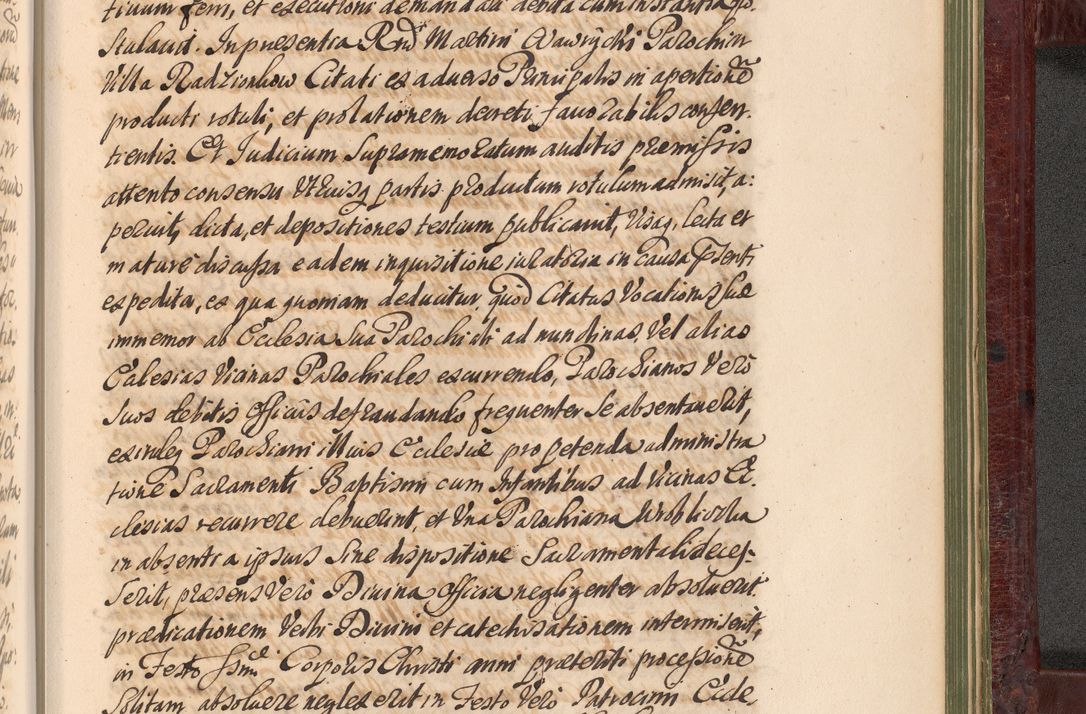 tiuum ferri, et executioni demandari debita cum instantia po:
stulauit. In praesentia Rndi Martini Wawrzychi Parochi in
Villa Radziechow Citati ex aduerso Principalis in apertione
producti rotuli, et prolationem decreti fauorabilis consen:
tientis. Et Judicium supramemoratum auditis praemissis
attento consensu Utriusq partis productum rotulum admisit, a:
peruit, dicta, et depositiones testium publicauit, Visaq, lecta et
mature discussa eadem inquisitione iuratoria in causa psenti
expedita, ex qua quoniam deducitur, quod Citatus Vocationis suae
immemor ab Ecclesia sua Parochiali ad nundinas, Vel alias
Ecclesias Vicinas Parochiales excurrendo, Parochianos Vero
suos debitis officiis defraudando frequenter se absentauerit,
exindeq Parochiani illius Ecclesiae pro petenda administra
tione Sacramenti Baptismi cum Infantibus ad Vicinas Ec:
clesias recurrere debuerint, et Una Parochiana
in absentia ipsius sine dispositione Sacramentali deces-
serit, praesens Vero Diuina officia negligenter absoluerit,
praedicationem Verbi Diuini et catechisationem intermiserit,
in Festo Ssmi Corporis Christi anni praeteriti processione
solitam absoluere neglexerit in Festo Vero Patrocinii Eccle,